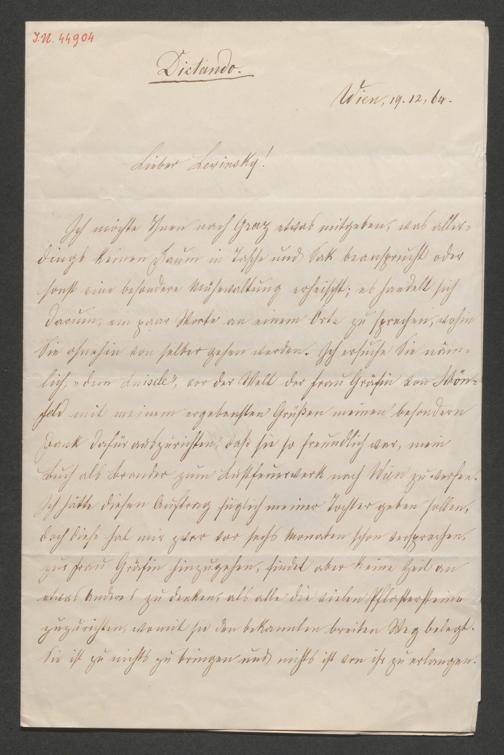 I.N. 44904
Dictando.
Wien, 19. 12, 64.
Lieber Lewinsky!
Ich möchte Ihnen nach Graz etwas mitgeben, was aller-
dings keinen Raum in Tasche und Sak beansprucht oder
sonst eine besondere Mühewaltung erheischt; es handelt sich
darum, ein paar Worte an einem Orte zu sprechen, wohin
Sie ohnehin von selber gehen werden. Ich ersuche Sie näm-
lich, „dem Luisele“, vor der Welt der Frau Gräfin von Schön-
feld mit meinem ergebensten Grüßen meinen besondern
Dank dafür auszurichten, daß sie so freundlich war, mein
Buch als Brander zum Luftfeuerwerk nach Wien zu werfen.
Ich hätte diesen Auftrag füglich meiner Tochter geben sollen,
doch diese hat mir zwar vor sechs Monaten schon versprochen,
zur Frau Gräfin hinzugehen, findet aber keine Zeit an
etwas Anderes zu denken, als alle die vielen Pflastersteine
zuzurichten, womit sie den bekannten breiten Weg belegt.
Sie ist zu nichts zu bringen und nichts ist von ihr zu erlangen.